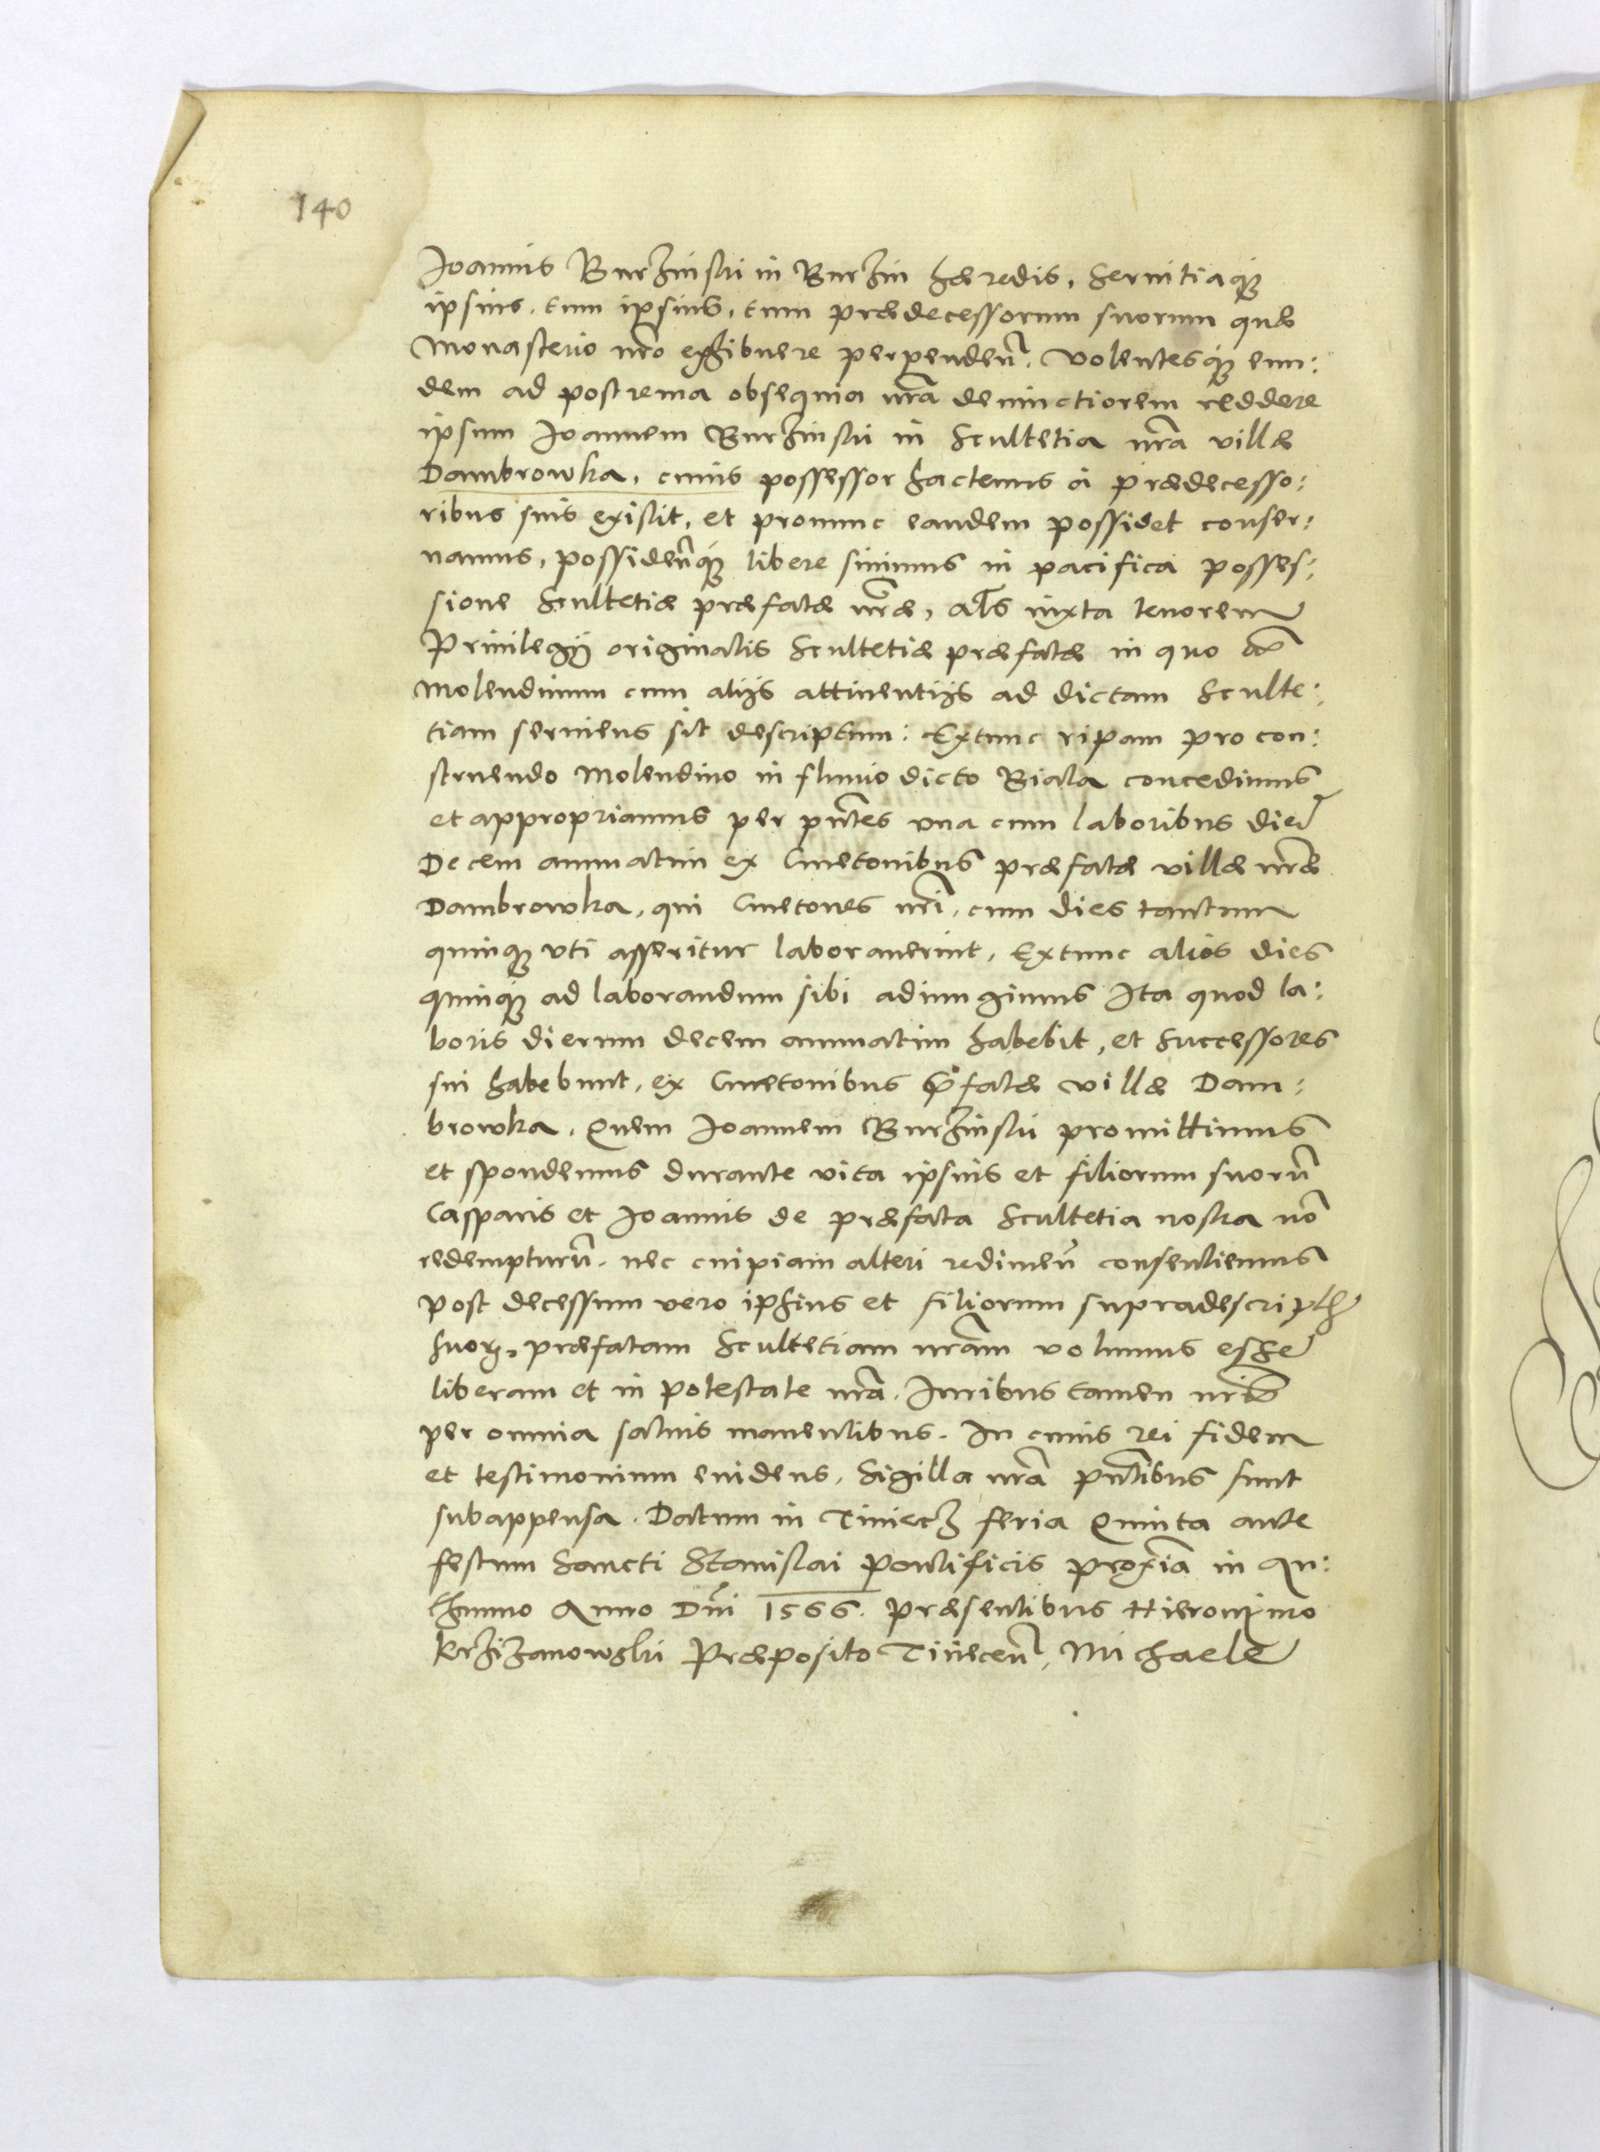 140
Joannis Burzinski in Burzin hæredis, servitiaq;
ipsius, tum ipsius, tum prædecessorum suorum quæ
Monasterio nr̃o exhibuere perpendeñ. Volentesq; eun:
dem ad postrema obsequia nr̃a devinctiorem reddere
ipsum Joannem Burzinski in Scultetia nr̃a villæ
Dambrowka, cuius possessor hactenus à prædecesso:
ribus suis existit, et pronunc eandem possidet conser:
vamus, possideñq; libere sinimus in pacifica posses:
sione Scultetiæ præfatæ nr̃æ, al̃s iuxta tenorem
Privilegij originalis Scultetiæ præfatæ in quo
Molendinum cum alijs attinentijs ad dictam Sculte:
tiam serviens sit descriptum: Extunc ripam pro con:
struendo Molendino in fluvio dicto Biala concedimus
et appropriamus per pñtes una cum laboribus dier̃
Decem annuatim ex Cmetonibus præfatæ villæ nr̃æ
Dambrowka, qui Cmetones nr̃i, cum dies tantum
quinq; uti asseritur laboraverint, Extunc alios dies
quinq; ad laborandum sibi adiungimus Ita quod la:
boris dierum decem annuatim habebit, et Successores
sui habebunt, ex Cmetonibus p̃fatæ villæ Dam:
browka. Quem Joannem Burzinski promittimus
et spondemus durante vita ipsius et filiorum suorũ
Casparis et Joannis de præfata Scultetia nostra nõ
redempturũ. nec cuipiam alteri redimeñ consentiemus
post decessum vero ipsius et filiorum supradescript
suorꝝ, præfatam Scultetiam nr̃am volumus esse
liberam et in potestate nr̃a. Juribus tamen nr̃is
per omnia salvis manentibus. In cuius rei fidem
et testimonium evidens, Sigilla nr̃a pñtibus sunt
subappensa. Datum in Tiniecz feria Quinta ante
festum Sancti Stanislai Pontificis proxĩa in
Anno Dñi 1566. præsentibus Hieronimo
Krzizanowski Præposito Tineceñ, Michaele